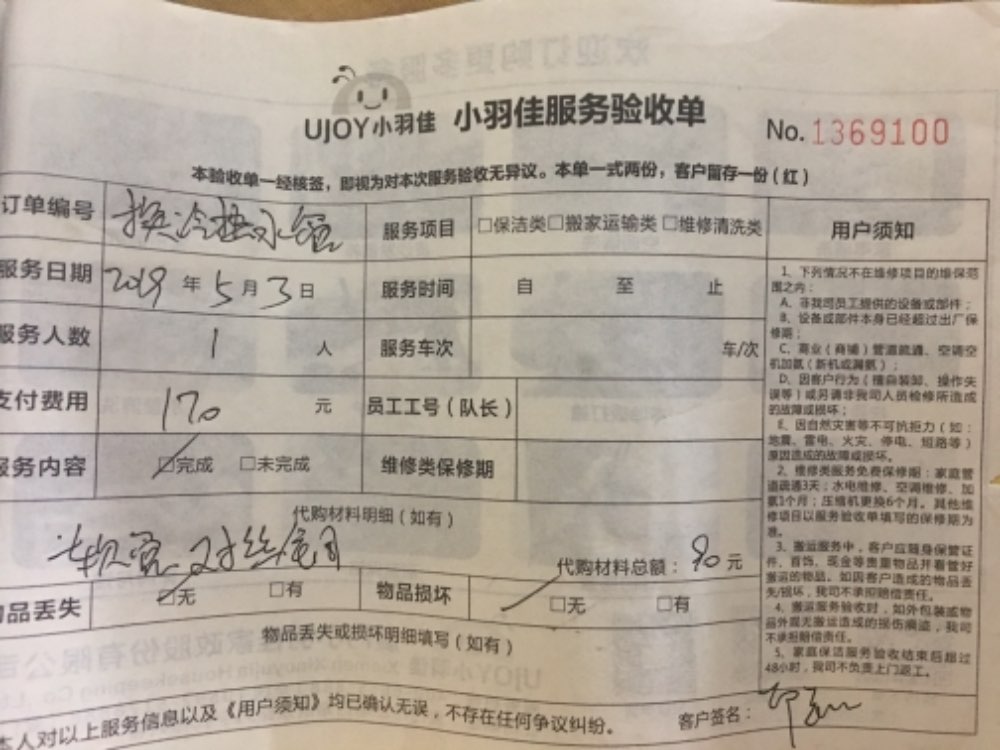 UJOY小羽佳 小羽佳服务验收单 No.1369100
本验收单一经核签，即视为对本次服务验收无异议。本单一式两份，客户留存一份(红)
订单编号 换冷热水管 服务项目 □保洁类□搬家运输类 □维修清洗类
服务日期 2019年5月3日 服务时间 自 至 止
服务人数 1 人 服务车次 车/次
支付费用 170 元 员工工号(队长)
服务内容 □完成 □未完成 维修类保修期
代购材料明细(如有)
代购材料总额：90元
物品丢失 □无 □有 物品损坏 □无 □有
物品丢失或损坏明细填写(如有)
本人对以上服务信息以及《用户须知》均已确认无误，不存在任何争议纠纷。 客户签名：
用户须知
1、下列情况不在维修项目的维保范
围之内：
A、非我司员工提供的设备或部件；
B、设备或部件本身已经超过出厂保
修期；
C、商业(商铺)管道疏通、空调空
机加氨(新机或漏氨)；
D、因客户行为(擅自装卸、操作失
误等)或另请非我司人员检修所造成
的故障或损坏；
E、因自然灾害等不可抗拒力(如：
地震、雷电、火灾、停电、短路等)
原因造成的故障或损坏。
2、维修类服务免费保修期：家庭管
道疏通3天；水电维修、空调维修、加
氨1个月；压缩机更换6个月。其他维
修项目以服务验收单填写的保修期为
准。
3、搬运服务中，客户应随身保管证
件、首饰、现金等贵重物品并看管好
搬运的物品。如因客户造成的物品丢
失/损坏，我司不承担赔偿责任。
4、搬运服务验收时，如外包装或物
品外观无搬运造成的损伤痕迹，我司
不承担赔偿责任。
5、家庭保洁服务验收结束后超过
48小时，我司不负责上门返工。